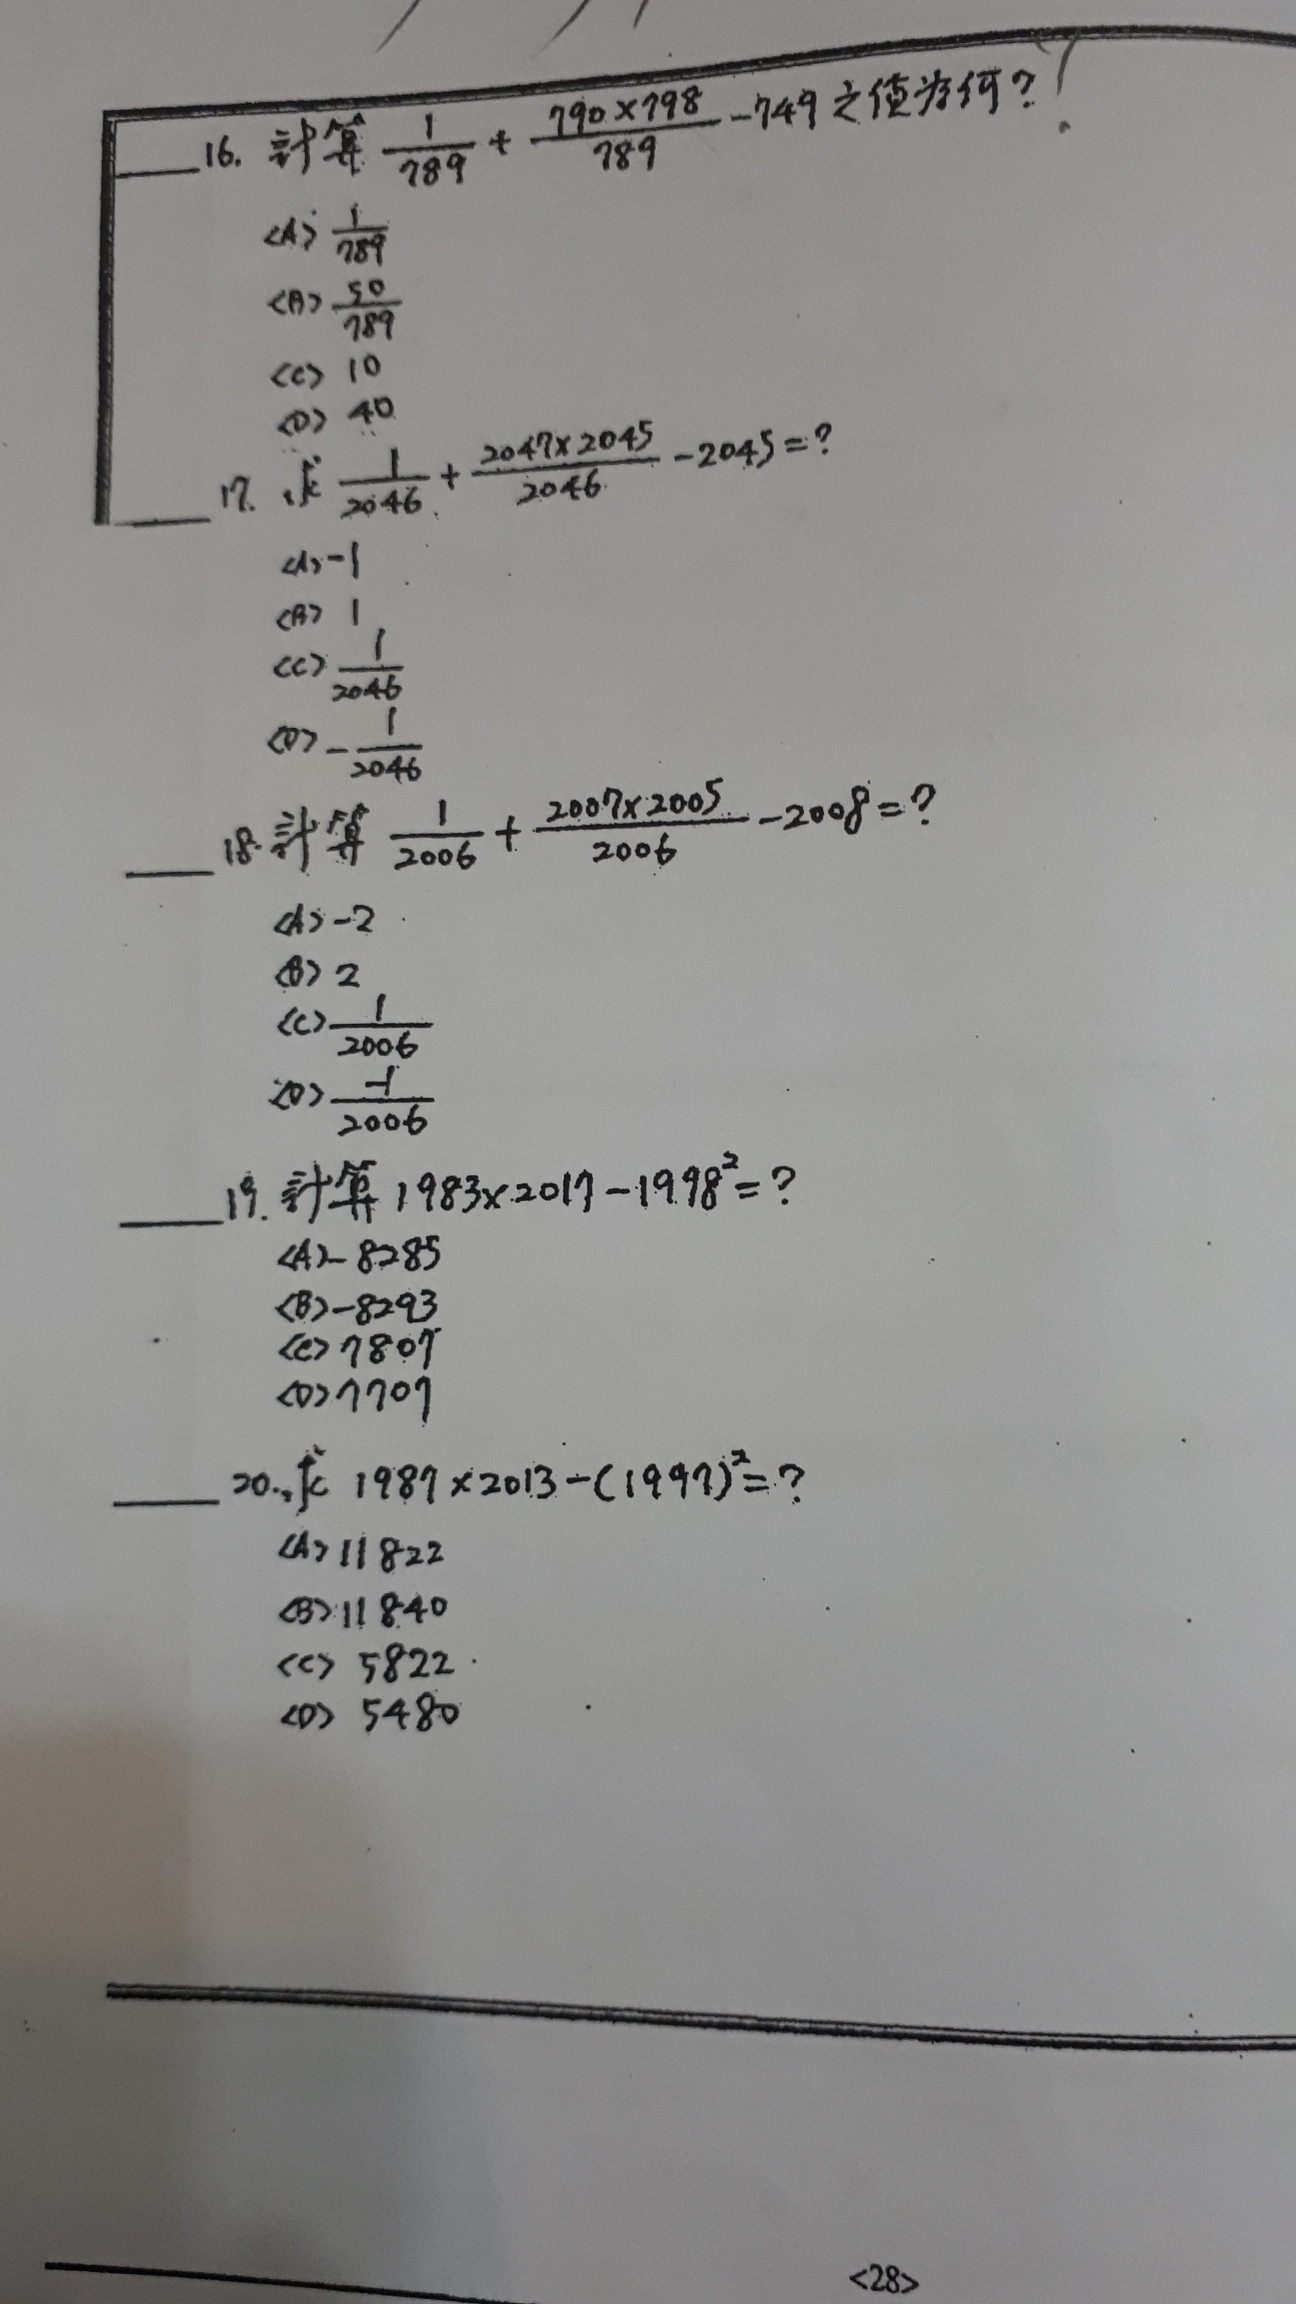 16. 計算 1/789 + (790×798)/789 - 749 之值為何?
<A> 1/789
<B> 50/789
<C> 10
<D> 40
17. 求 1/2046 + (2047×2045)/2046 - 2045 = ?
<A> -1
<B> 1
<C> 1/2046
<D> -1/2046
18. 計算 1/2006 + (2007×2005)/2006 - 2008 = ?
<A> -2
<B> 2
<C> 1/2006
<D> -1/2006
19. 計算 1983×2017-1998² = ?
<A> -8285
<B> -8293
<C> 7807
<D> 7707
20. 求 1987×2013-(1997)² = ?
<A> 11822
<B> 11840
<C> 5822
<D> 5480
<28>